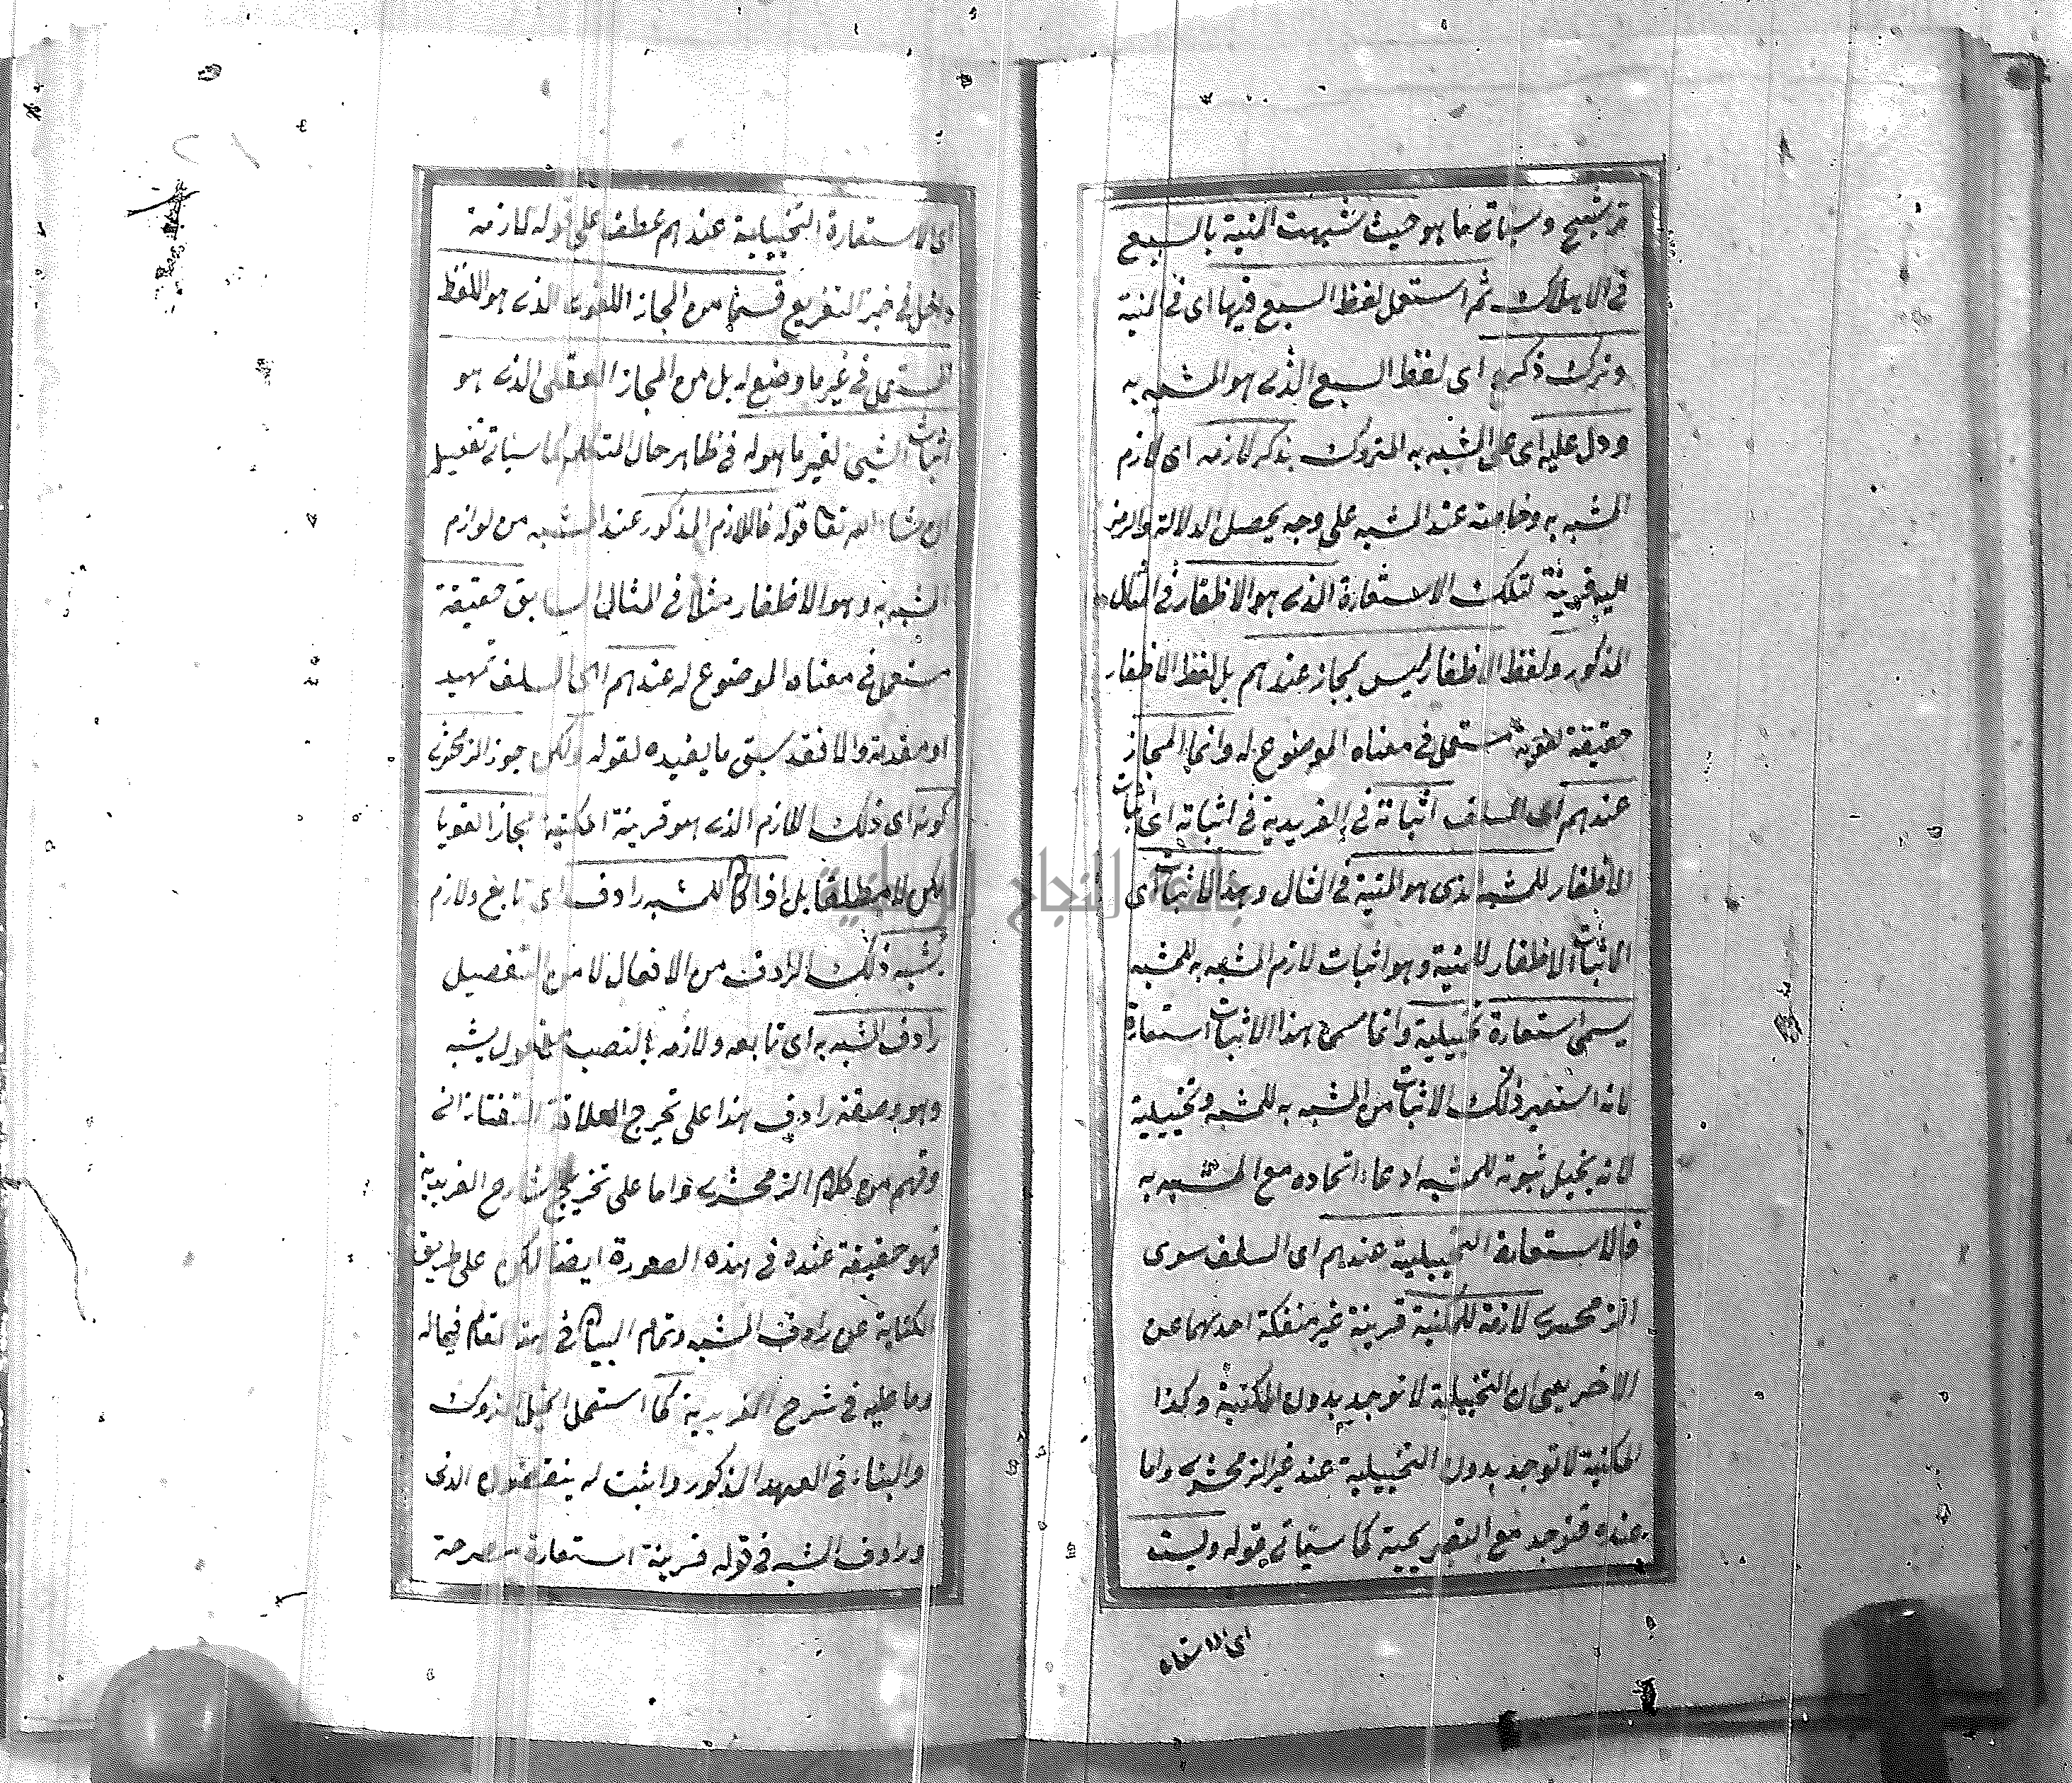 ترشيح وسياتى ما هو حيث شبهت المنية بالسبع
فى الاهلاك ثم استعمل لفظ السبع فيها اى فى المنية
وترك ذكره اى لفظ السبع الذى هو المشبه به
ودل عليه اى على المشبه به المتروك بذكر لازمه اى لازم
المشبه به وخاصته عند المشبه على وجه يحصل الدلالة والرمز
اليه قرينة لتلك الاستعارة الذى هو الاظفار فى المثال
المذكور ولفظ الاظفار ليس بمجاز عندهم بل لفظ الاظفار
حقيقة لغوية مستعمل فى معناه الموضوع له وانما المجاز
عندهم اى السلف اثباته فى الفريدية فى اثباته اى اثبات
الاظفار للمشبه الذى هو المنية فى المثال وهذا الاثبات اى
الاثبات الاظفار للمنية وهو اثبات لازم المشبه به للمشبه
يسمى استعارة تخييلية وانما سمى هذا الاثبات استعارة
لانه استعير ذلك الاثبات من المشبه به للمشبه وتخييلية
لانه يخيل ثبوته للمشبه ادعاء اتحاده مع المشبه به
فالاستعارة التخييلية عندهم اى السلف سوى
الزمخشرى لازمة للمكنية قرينة غير منفكة احدهما عن
الاخر يعنى ان التخييلية لا توجد بدون المكنية وكذا
المكنية لا توجد بدون التخييلية عند غير الزمخشرى واما
عنده فتوجد مع التصريحية كما سيأتى قوله وليست
اى الاستعارة
اى الاستعارة التخييلية عندهم عطف على قوله لازمة
داخل فى خبر التفريع قسما من المجاز اللغوى الذى هو اللفظ
المستعمل فى غير ما وضع له بل من المجاز العقلى الذى هو
اثبات الشيئ لغير ما هو له فى ظاهر حال المتكلم كما سياتى تفصيل
ان شاء الله تعا قوله فاللازم المذكور عند المشبه من لوازم
المشبه به وهو الاظفار مثلا فى المثال السابق حقيقة
مستعمل فى معناه الموضوع له عندهم اى السلف تمهيد
او مقدمة والا فقد سبق ما يفيده لقوله ولكن جوز الزمخشرى
كونه اى ذلك اللازم الذى هو قرينة المكنية مجازا لغويا
لكن لا مطلقا بل اذا كان للمشبه رادف اى تابع ولازم
يشبه ذلك الرادف من الافعال لا من التفصيل
رادف المشبه به اى تابعه ولازمه بالنصب مفعول يشبه
وهو وصفته رادف هذا على تخريج العلامة التفتازانى
وفهم من كلام الزمخشرى واما على تخريج شارح الفريدية
فهو حقيقة عنده فى هذه الصورة ايضا لكن على طريق
الكناية عن رادف المشبه وتمام البيان فى هذا المقام فيما له
وما عليه فى شرح الفريدية كما استعمل الحبل المتروك
والبناء فى العهد المذكور واثبت له ينقضون الذى
ورادف المشبه فى قوله قرينة استعارة مصرحة